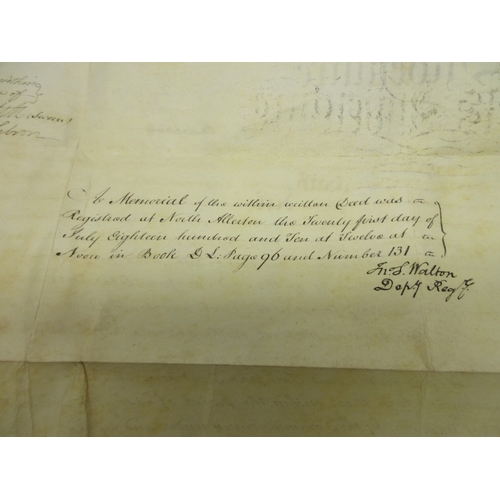 A Memorial of the within written Deed was
Registred at North Allerton the Twenty first day of
July Eighteen hundred and Ten at Twelve at
Noon in Book D L: Page 96 and Number 131
Jno. S. Walton
Depy Regr.